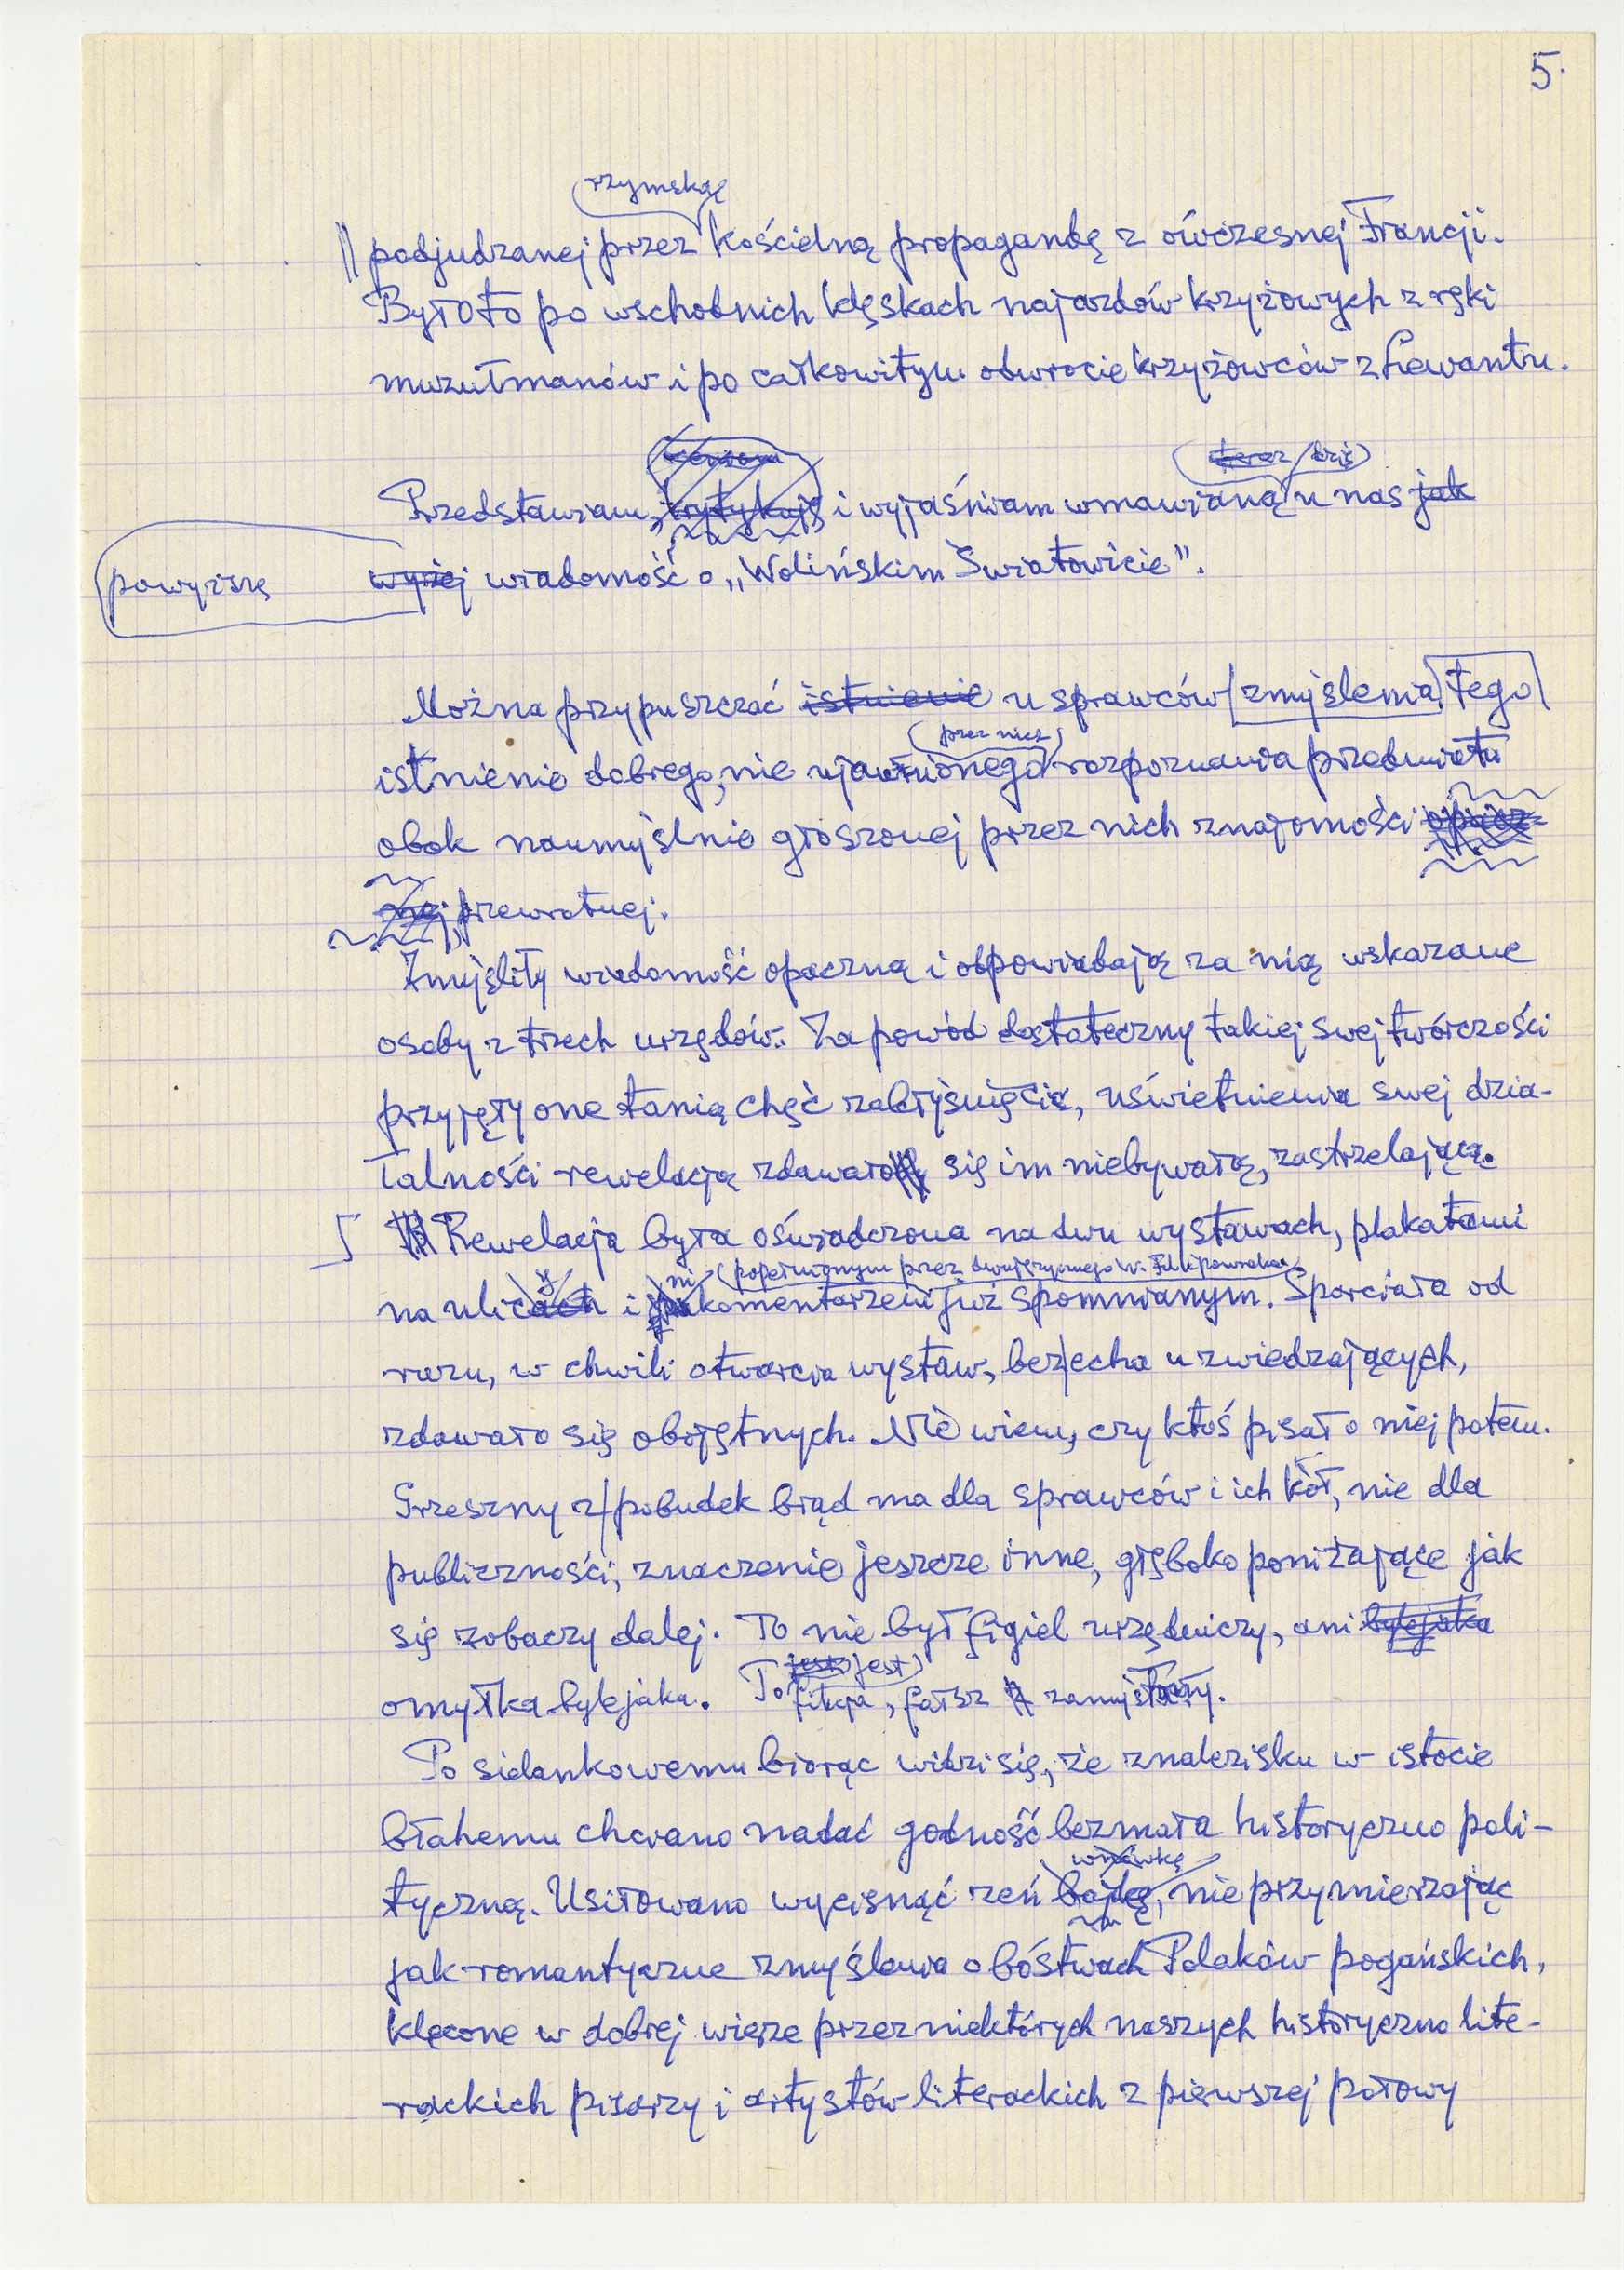 5.
rzymską
podjudzanej przez kościelną propagandę z ówczesnej Francji.
Było to po wschodnich klęskach najazdów krzyżowych z ręki
muzułmanów i po całkowitym odwrocie krzyżowców z Lewantu.
teraz dziś
Przedstawiam, krytykuję i wyjaśniam wmawianą u nas jak
powyższą
wyżej wiadomość o „Wolińskim Światowicie".
Można przypuszczać istnienie u sprawców zmyślenia tego
przez nich
istnienie dobrego, nie ujawnionego rozpoznania przedmiotu
obok naumyślnie głoszonej przez nich znajomości opacz-
nej, przewrotnej.
Zmyśliły wiadomość opaczną i odpowiadają za nią wskazane
osoby z trzech urzędów. Za powód dostateczny takiej swej twórczości
przyjęły one tanią chęć zabłyśnięcia, uświetnienia swej dzia-
łalności rewelacją zdawało się im niebywałą, zastrzelającą.
Rewelacja była oświadczona na dwu wystawach, plakatami
y ni popełnionym przez dwujęzycznego W. Filipowiaka
na ulicach i komentarzem już spomnianym. Sparciała od
razu, w chwili otwarcia wystaw, bez echa u zwiedzających,
zdawało się obojętnych. Nie wiem, czy ktoś pisał o niej potem.
Grzeszny z pobudek błąd ma dla sprawców i ich kół, nie dla
publiczności, znaczenie jeszcze inne, głęboko poniżające jak
się zobaczy dalej. To nie był figiel urzędniczy, ani bylejaka
jest jest
omyłka bylejaka. To fikcja, fałsz zamyślały.
Po sielankowemu biorąc widzi się, że znalezisku w istocie
błahemu chciano nadać godność bezmała historyczno poli-
wmówkę
tyczną. Usiłowano wycisnąć zeń bajdę, nie przymierzając
jak romantyczne zmyślenia o bóstwach Polaków pogańskich,
klęcone w dobrej wierze przez niektórych naszych historyczno lite-
rackich pisarzy i artystów literackich z pierwszej połowy